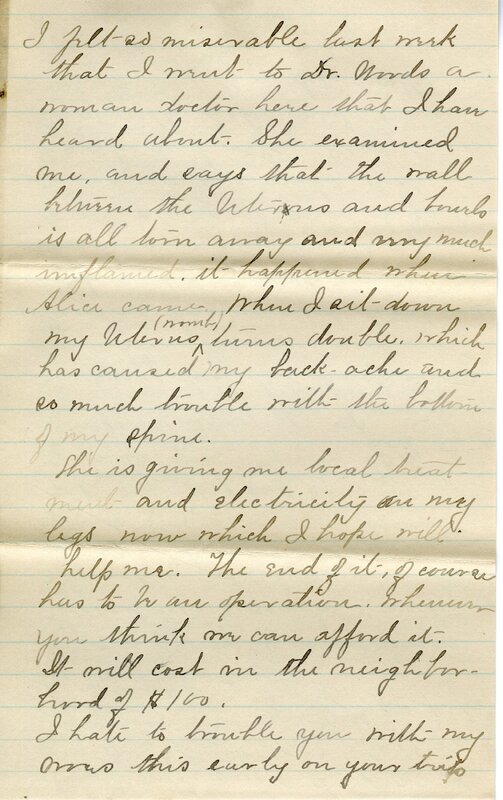 I felt so miserable last week
that I went to Dr. Words a
woman doctor here that I have
heard about. She examined
me, and says that the wall
between the Uterus and bowels
is all torn away and very much
inflamed. it happened when
Alice came. When I sit down
my Uterus (womb) turns double. which
has caused my back-ache and
so much trouble with the bottom
of my spine.
She is giving me local treat
ment and electricity on my
legs now which I hope will
help me. The end of it, of course
has to be an operation. whenever
you think we can afford it.
It will cost in the neighbor-
hood of $100.
I hate to trouble you with my
woes this early on your trip